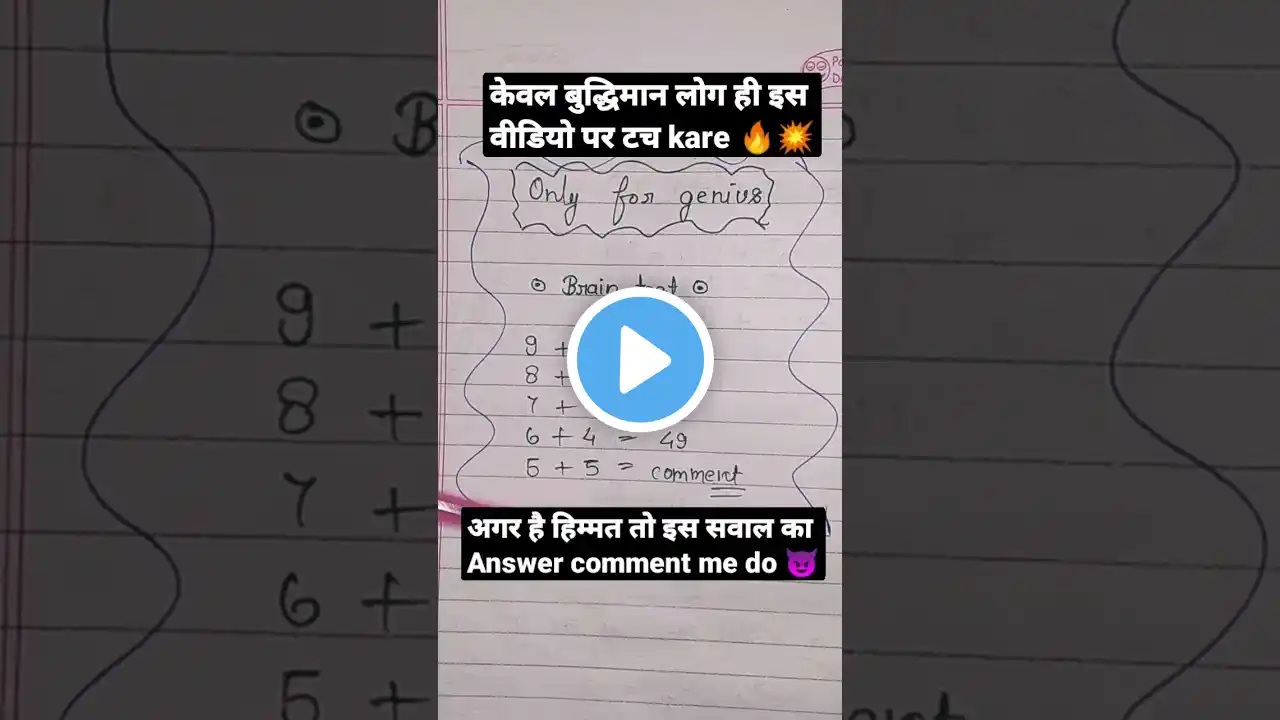 केवल बुद्धिमान लोग ही इस
वीडियो पर टच kare 🔥💥
Only for genius
Brain
9 +
8 +
7 +
6 + 4 = 49
5 + 5 = comment
अगर है हिम्मत तो इस सवाल का
Answer comment me do 😈
9 +
8 +
7 +
6 +
5 +